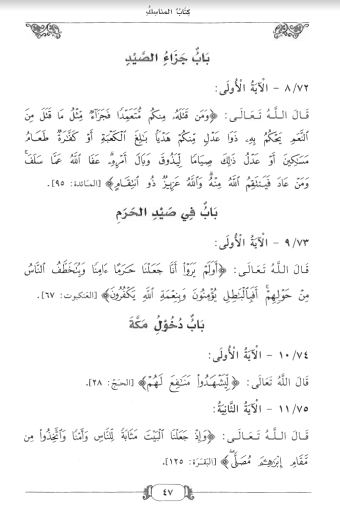 كِتَابُ المَنَاسِك
بَابُ جَزَاءُ الصَّيْدِ
٨/٧٢ - الْآيَةُ الْأُولَى:
قَالَ اللَّهُ تَعَالَى: ﴿وَمَن قَتَلَهُۥ مِنكُم مُّتَعَمِّدًا فَجَزَآءٌ مِّثْلُ مَا قَتَلَ مِنَ
ٱلنَّعَمِ يَحْكُمُ بِهِۦ ذَوَا عَدْلٍ مِّنكُمْ هَدْيًۢا بَٰلِغَ ٱلْكَعْبَةِ أَوْ كَفَّٰرَةٌ طَعَامُ
مَسَٰكِينَ أَوْ عَدْلُ ذَٰلِكَ صِيَامًا لِّيَذُوقَ وَبَالَ أَمْرِهِۦ عَفَا ٱللَّهُ عَمَّا سَلَفَ
وَمَنْ عَادَ فَيَنتَقِمُ ٱللَّهُ مِنْهُ وَٱللَّهُ عَزِيزٌ ذُو ٱنتِقَامٍ﴾ [المائدة: ٩٥].
بَابٌ فِي صَيْدِ الحَرَمِ
٩/٧٣ - الْآيَةُ الْأُولَى:
قَالَ اللَّهُ تَعَالَى: ﴿أَوَلَمْ يَرَوْا۟ أَنَّا جَعَلْنَا حَرَمًا ءَامِنًا وَيُتَخَطَّفُ ٱلنَّاسُ
مِنْ حَوْلِهِمْ أَفَبِٱلْبَٰطِلِ يُؤْمِنُونَ وَبِنِعْمَةِ ٱللَّهِ يَكْفُرُونَ﴾ [العنكبوت: ٦٧].
بَابُ دُخُوْلِ مَكَّةَ
١٠/٧٤ - الْآيَةُ الْأُولَى:
قَالَ اللَّهُ تَعَالَى: ﴿لِّيَشْهَدُوا۟ مَنَٰفِعَ لَهُمْ﴾ [الحَجّ: ٢٨].
١١/٧٥ - الْآيَةُ الثَّانِيَةُ:
قَالَ اللَّهُ تَعَالَى: ﴿وَإِذْ جَعَلْنَا ٱلْبَيْتَ مَثَابَةً لِّلنَّاسِ وَأَمْنًا وَٱتَّخِذُوا۟ مِن
مَّقَامِ إِبْرَٰهِۦمَ مُصَلًّى﴾ [البَقَرَة: ١٢٥].
٤٧